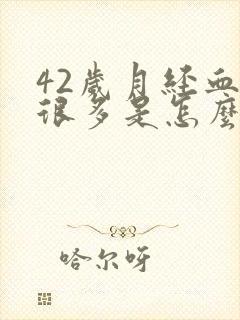 42歲月經血
很多是怎麼
哈尔呀